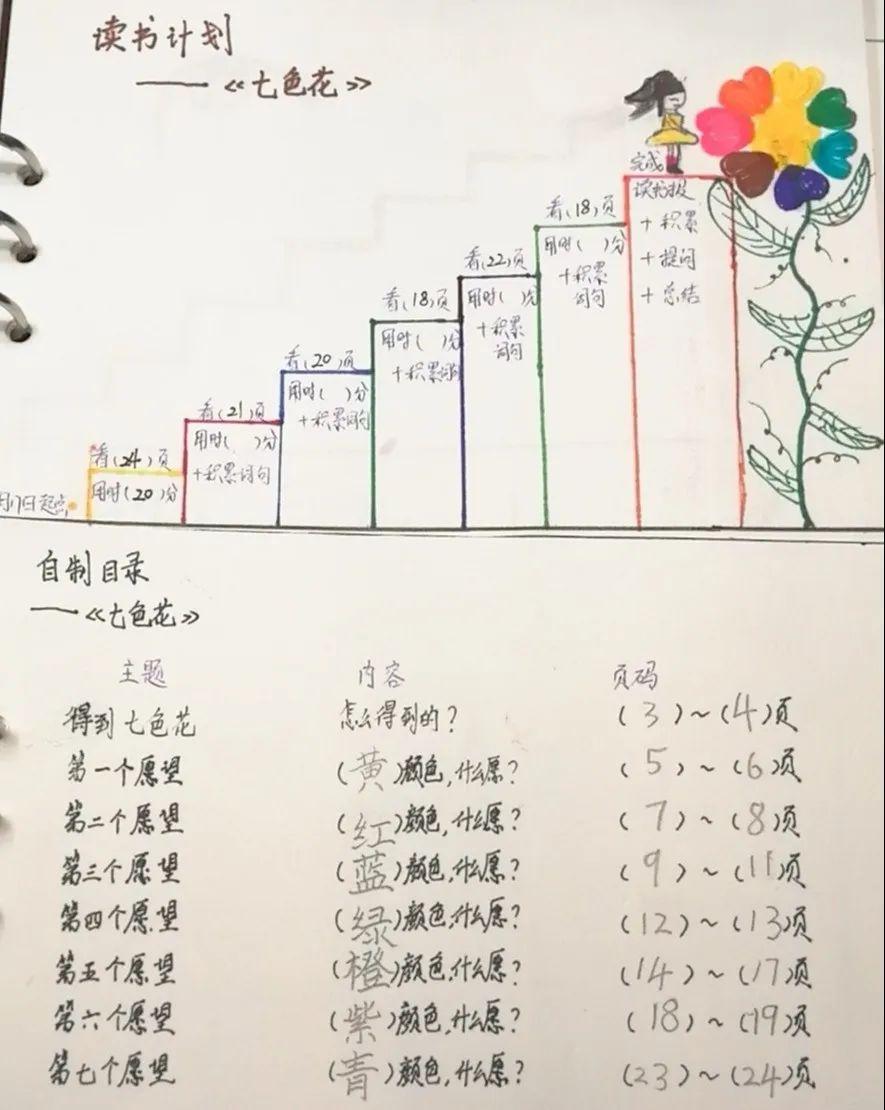 读书计划
——《七色花》
完成。
看(18)页
读书报
用时( )分
+积累
词句
+积累
+提问
+总结
看(22)页
用时( )分
+积累
词句
看(18)页
用时( )分
+积累词句
看(20)页
用时( )分
+积累词句
看(21)页
用时( )分
+积累词句
看(24)页
用时(20)分
月17日起点
自制目录
——《七色花》
主题 内容 页码
得到七色花 怎么得到的? (3)~(4)页
第一个愿望 (黄)颜色,什么愿? (5)~(6)页
第二个愿望 (红)颜色,什么愿? (7)~(8)页
第三个愿望 (蓝)颜色,什么愿? (9)~(11)页
第四个愿望 (绿)颜色,什么愿? (12)~(13)页
第五个愿望 (橙)颜色,什么愿? (14)~(17)页
第六个愿望 (紫)颜色,什么愿? (18)~(19)页
第七个愿望 (青)颜色,什么愿? (23)~(24)页